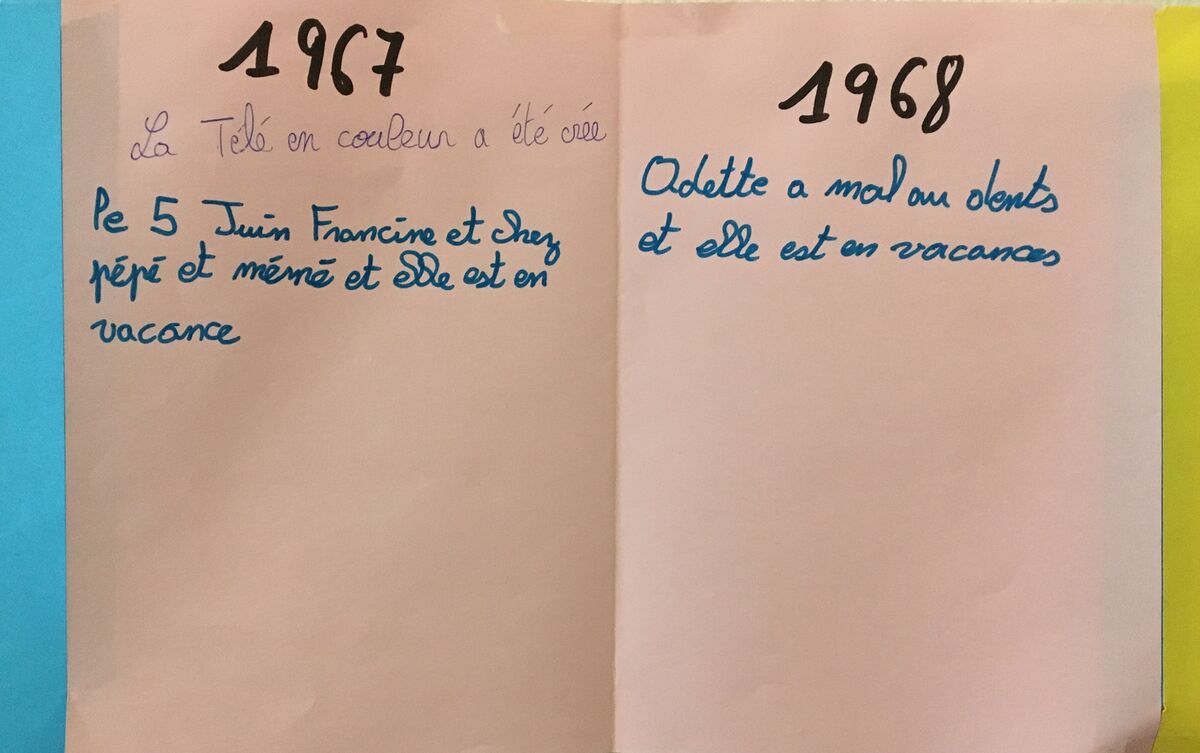 1967
La Télé en couleur a été crée
Le 5 Juin Francine et chez
pépé et mémé et elle est en
vacance
1968
Odette a mal au dents
et elle est en vacances